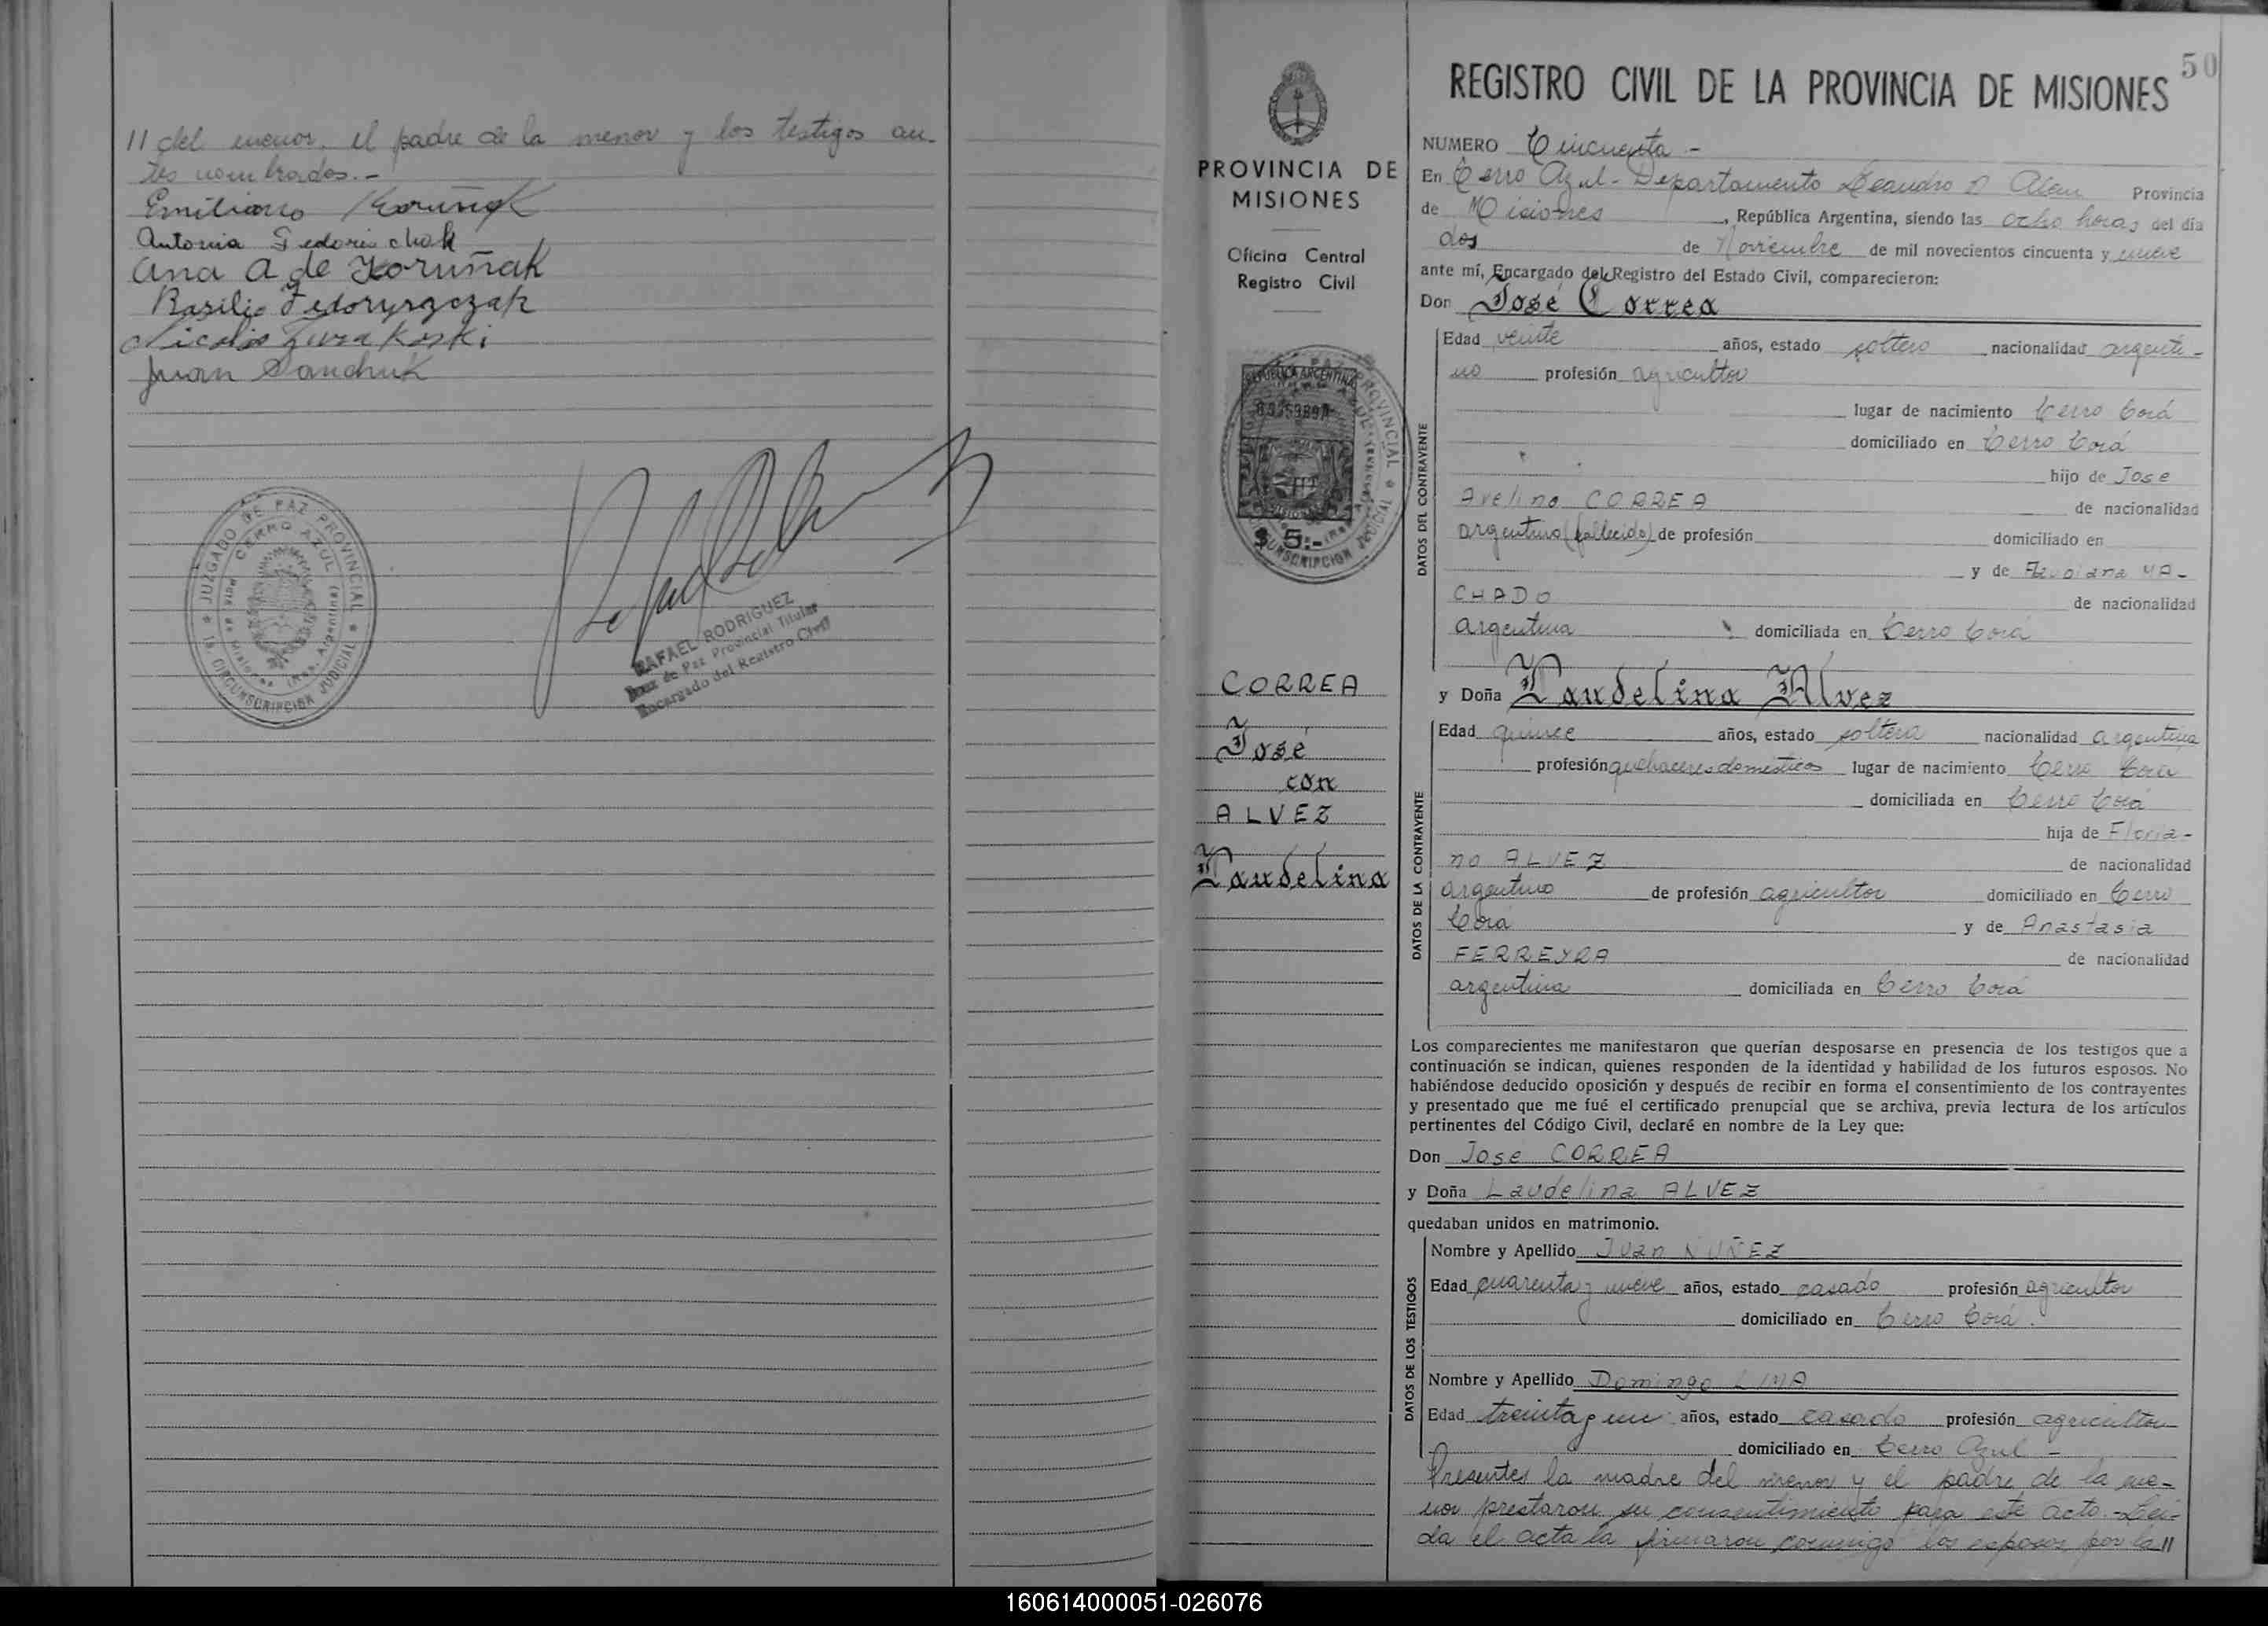 // del menor, el padre de la menor y los testigos an-
tes nombrados.-
Emiliano Koruñak
Antonia Fedorischak
Ana A de Koruñak
Basilio Fedoryszczak
Nicolas Zurakoski
Juan Sanchuk
JUZGADO DE PAZ PROVINCIAL
CERRO AZUL
1a. CIRCUNSCRIPCION JUDICIAL
RAFAEL RODRIGUEZ
Juez de Paz Provincial Titular
Encargado del Registro Civil
PROVINCIA DE
MISIONES
Oficina Central
Registro Civil
REPUBLICA ARGENTINA
MISIONES
$ 5:-
CORREA
José
con
ALVEZ
Laudelina
50
REGISTRO CIVIL DE LA PROVINCIA DE MISIONES
NUMERO Cincuenta -
En Cerro Azul - Departamento Leandro N Alem Provincia
de Misiones, República Argentina, siendo las ocho horas del día
dos de Noviembre de mil novecientos cincuenta y nueve
ante mí, Encargado del Registro del Estado Civil, comparecieron:
Don José Correa
DATOS DEL CONTRAYENTE
Edad veinte años, estado soltero nacionalidad argenti-
no profesión agricultor
lugar de nacimiento Cerro Corá
domiciliado en Cerro Corá
hijo de Jose
Avelino CORREA de nacionalidad
argentino (fallecido) de profesión domiciliado en
y de MA-
CHADO de nacionalidad
argentina domiciliada en Cerro Corá
y Doña Laudelina Alvez
DATOS DE LA CONTRAYENTE
Edad quince años, estado soltera nacionalidad argentina
profesión quehaceres domésticos lugar de nacimiento Cerro Corá
domiciliada en Cerro Corá
hija de Floria-
no ALVEZ de nacionalidad
argentino de profesión agricultor domiciliado en Cerro
Corá y de Anastasia
FERREYRA de nacionalidad
argentina domiciliada en Cerro Corá
Los comparecientes me manifestaron que querían desposarse en presencia de los testigos que a
continuación se indican, quienes responden de la identidad y habilidad de los futuros esposos. No
habiéndose deducido oposición y después de recibir en forma el consentimiento de los contrayentes
y presentado que me fué el certificado prenupcial que se archiva, previa lectura de los artículos
pertinentes del Código Civil, declaré en nombre de la Ley que:
Don Jose CORREA
y Doña Laudelina ALVEZ
quedaban unidos en matrimonio.
DATOS DE LOS TESTIGOS
Nombre y Apellido Juan NUÑEZ
Edad cuarenta y nueve años, estado casado profesión agricultor
domiciliado en Cerro Corá.
Nombre y Apellido Domingo LIMA
Edad treinta y un años, estado casado profesión agricultor
domiciliado en Cerro Azul -
Presentes la madre del menor y el padre de la me-
nor prestaron su consentimiento para este acto.- Leí-
da el acta la firmaron conmigo los esposos por la //
160614000051-026076